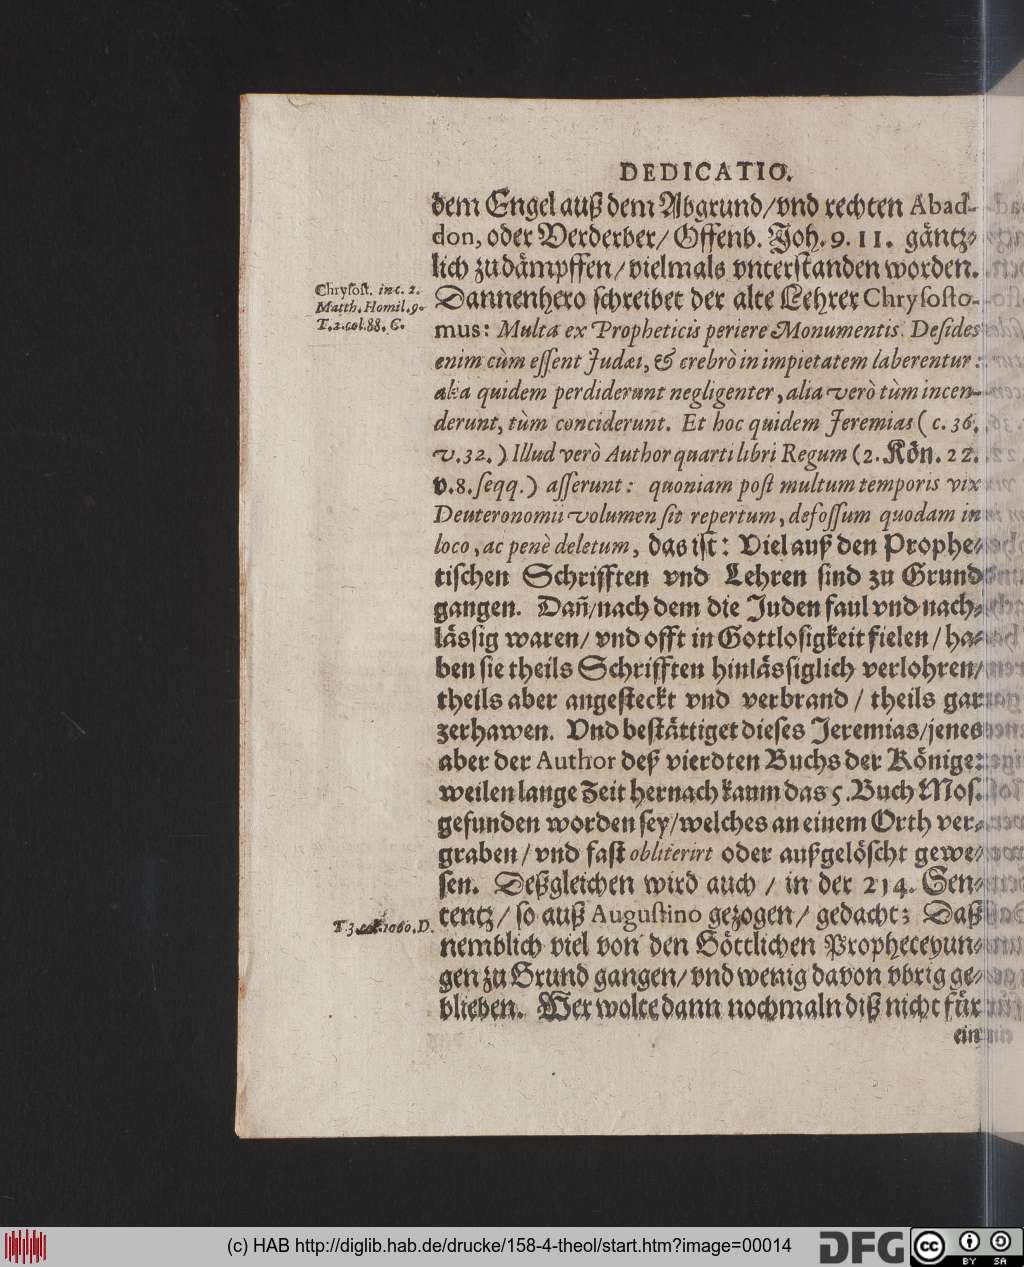 DEDICATIO.
dem Engel auß dem Abgrund/vnd rechten Abad-
don, oder Verderber/ Offenb. Joh. 9. 11. gäntz-
lich zu dämpffen/ vielmals vnterstanden worden.
Chrysost. in c. 2.
Matth. Homil. 9.
T. 2. col. 88. C.
Dannenhero schreibet der alte Lehrer Chrysosto-
mus: Multa ex Propheticis periere Monumentis. Desides
enim cùm essent Judæi, & crebrò in impietatem laberentur:
alia quidem perdiderunt negligenter, alia verò tùm incen-
derunt, tùm conciderunt. Et hoc quidem Jeremias (c. 36.
v. 32.) Illud verò Author quarti libri Regum (2. Kön. 22.
v. 8. seqq.) asserunt: quoniam post multum temporis vix
Deuteronomii volumen sit repertum, defossum quodam in
loco, ac penè deletum, das ist: Viel auß den Prophe-
tischen Schrifften vnd Lehren sind zu Grund
gangen. Dañ/nach dem die Juden faul vnd nach-
lässig waren/ vnd offt in Gottlosigkeit fielen/ ha-
ben sie theils Schrifften hinlässiglich verlohren/
theils aber angesteckt vnd verbrand/ theils gar
zerhawen. Vnd bestättiget dieses Jeremias/jenes
aber der Author deß vierdten Buchs der Könige:
weilen lange Zeit hernach kaum das 5. Buch Mos.
gefunden worden sey/welches an einem Orth ver-
graben/ vnd fast obliterirt oder außgelöscht gewe-
sen. Deßgleichen wird auch/ in der 214. Sen-
T. 3. col. 1060. D.
tentz/ so auß Augustino gezogen/ gedacht; Daß
nemblich viel von den Göttlichen Propheceyun-
gen zu Grund gangen/ vnd wenig davon vbrig ge-
blieben. Wer wolte dann nochmaln diß nicht für
ein
(c) HAB http://diglib.hab.de/drucke/158-4-theol/start.htm?image=00014
DFG
cc BY SA